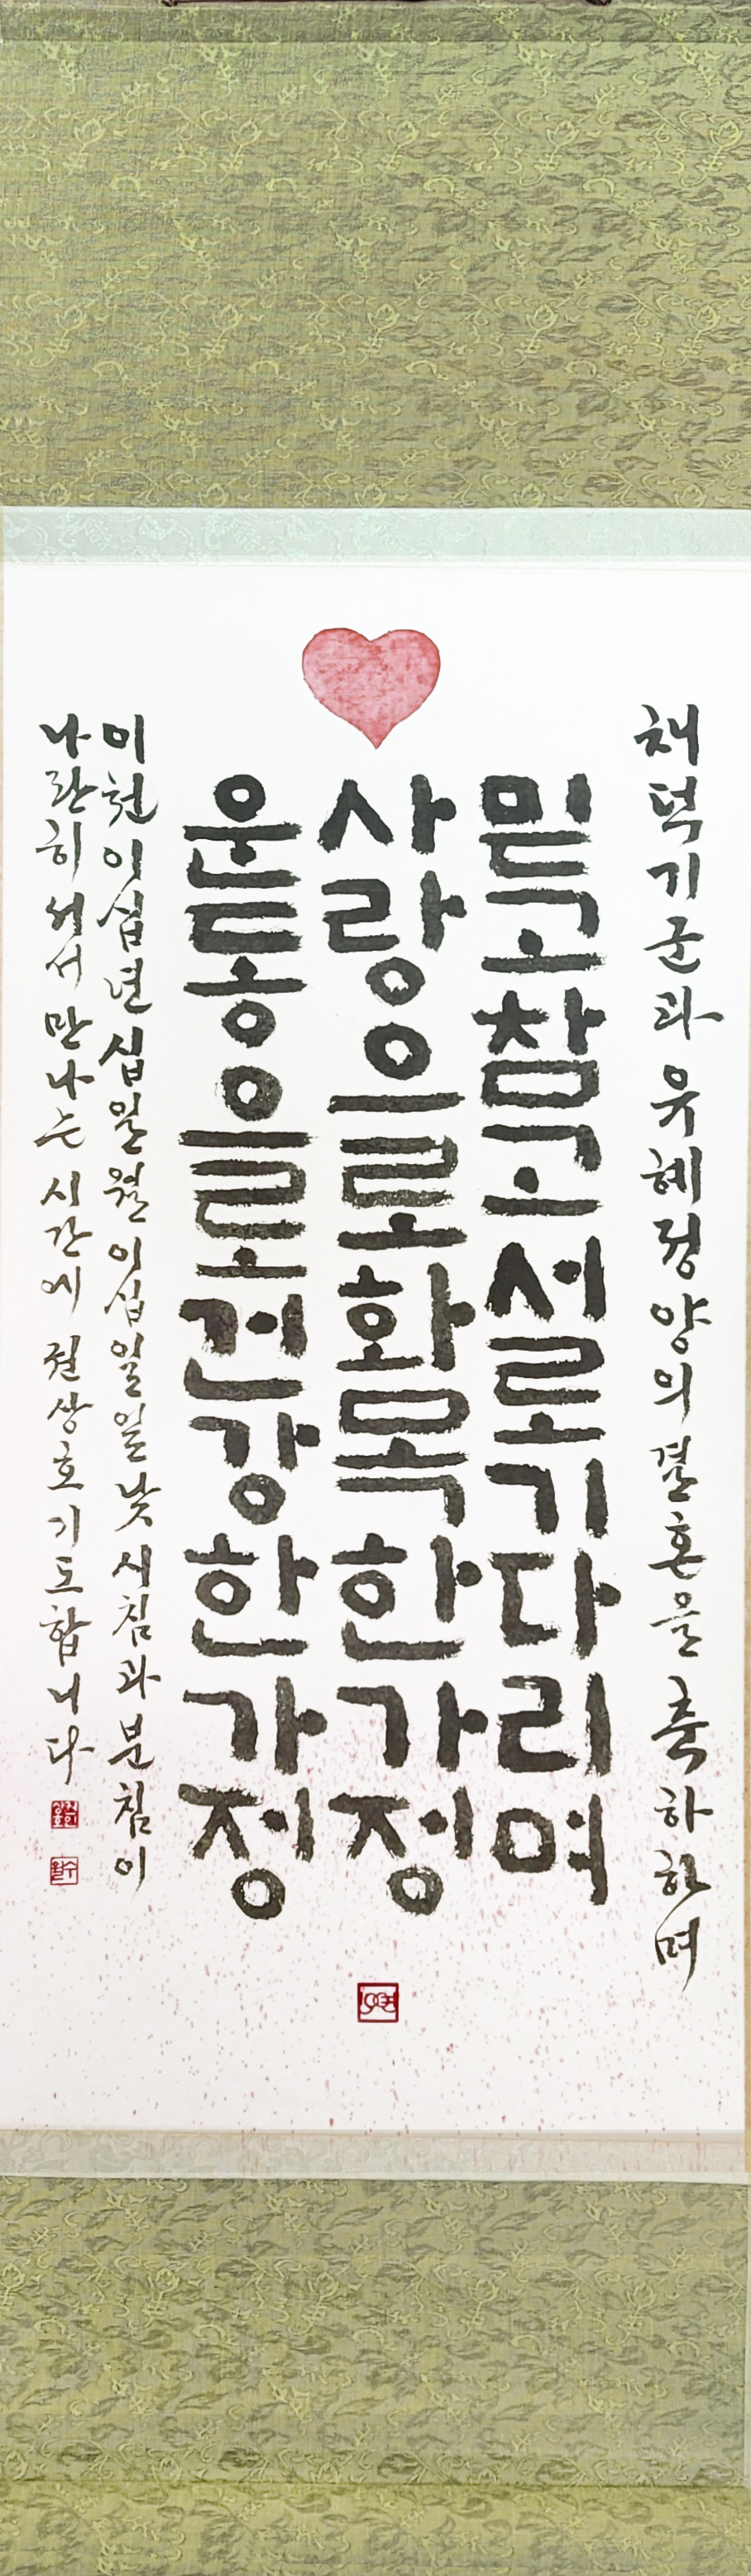 채덕기군과 유혜정양의 결혼을 축하하며
믿고참고서로기다리며
사랑으로화목한가정
운동으로건강한가정
이천이십년십일월이십일일낮 시침과분침이
나란히서서만나는 시간에 권상호기도합니다